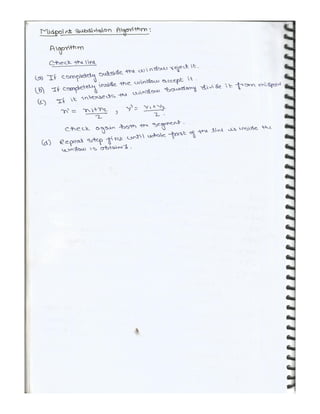 Midpoint Subdivision Algorithm:
Algorithm
Check the line
(a) If completely outside the window reject it.
(b) If completely inside the window accept it.
(c) If it intersects the window boundary divide it from midpoint
x' = x1+x2 / 2 , y' = y1+y2 / 2.
Check again both the segment.
(d) Repeat step until whole part of the line is inside the
window is obtained.